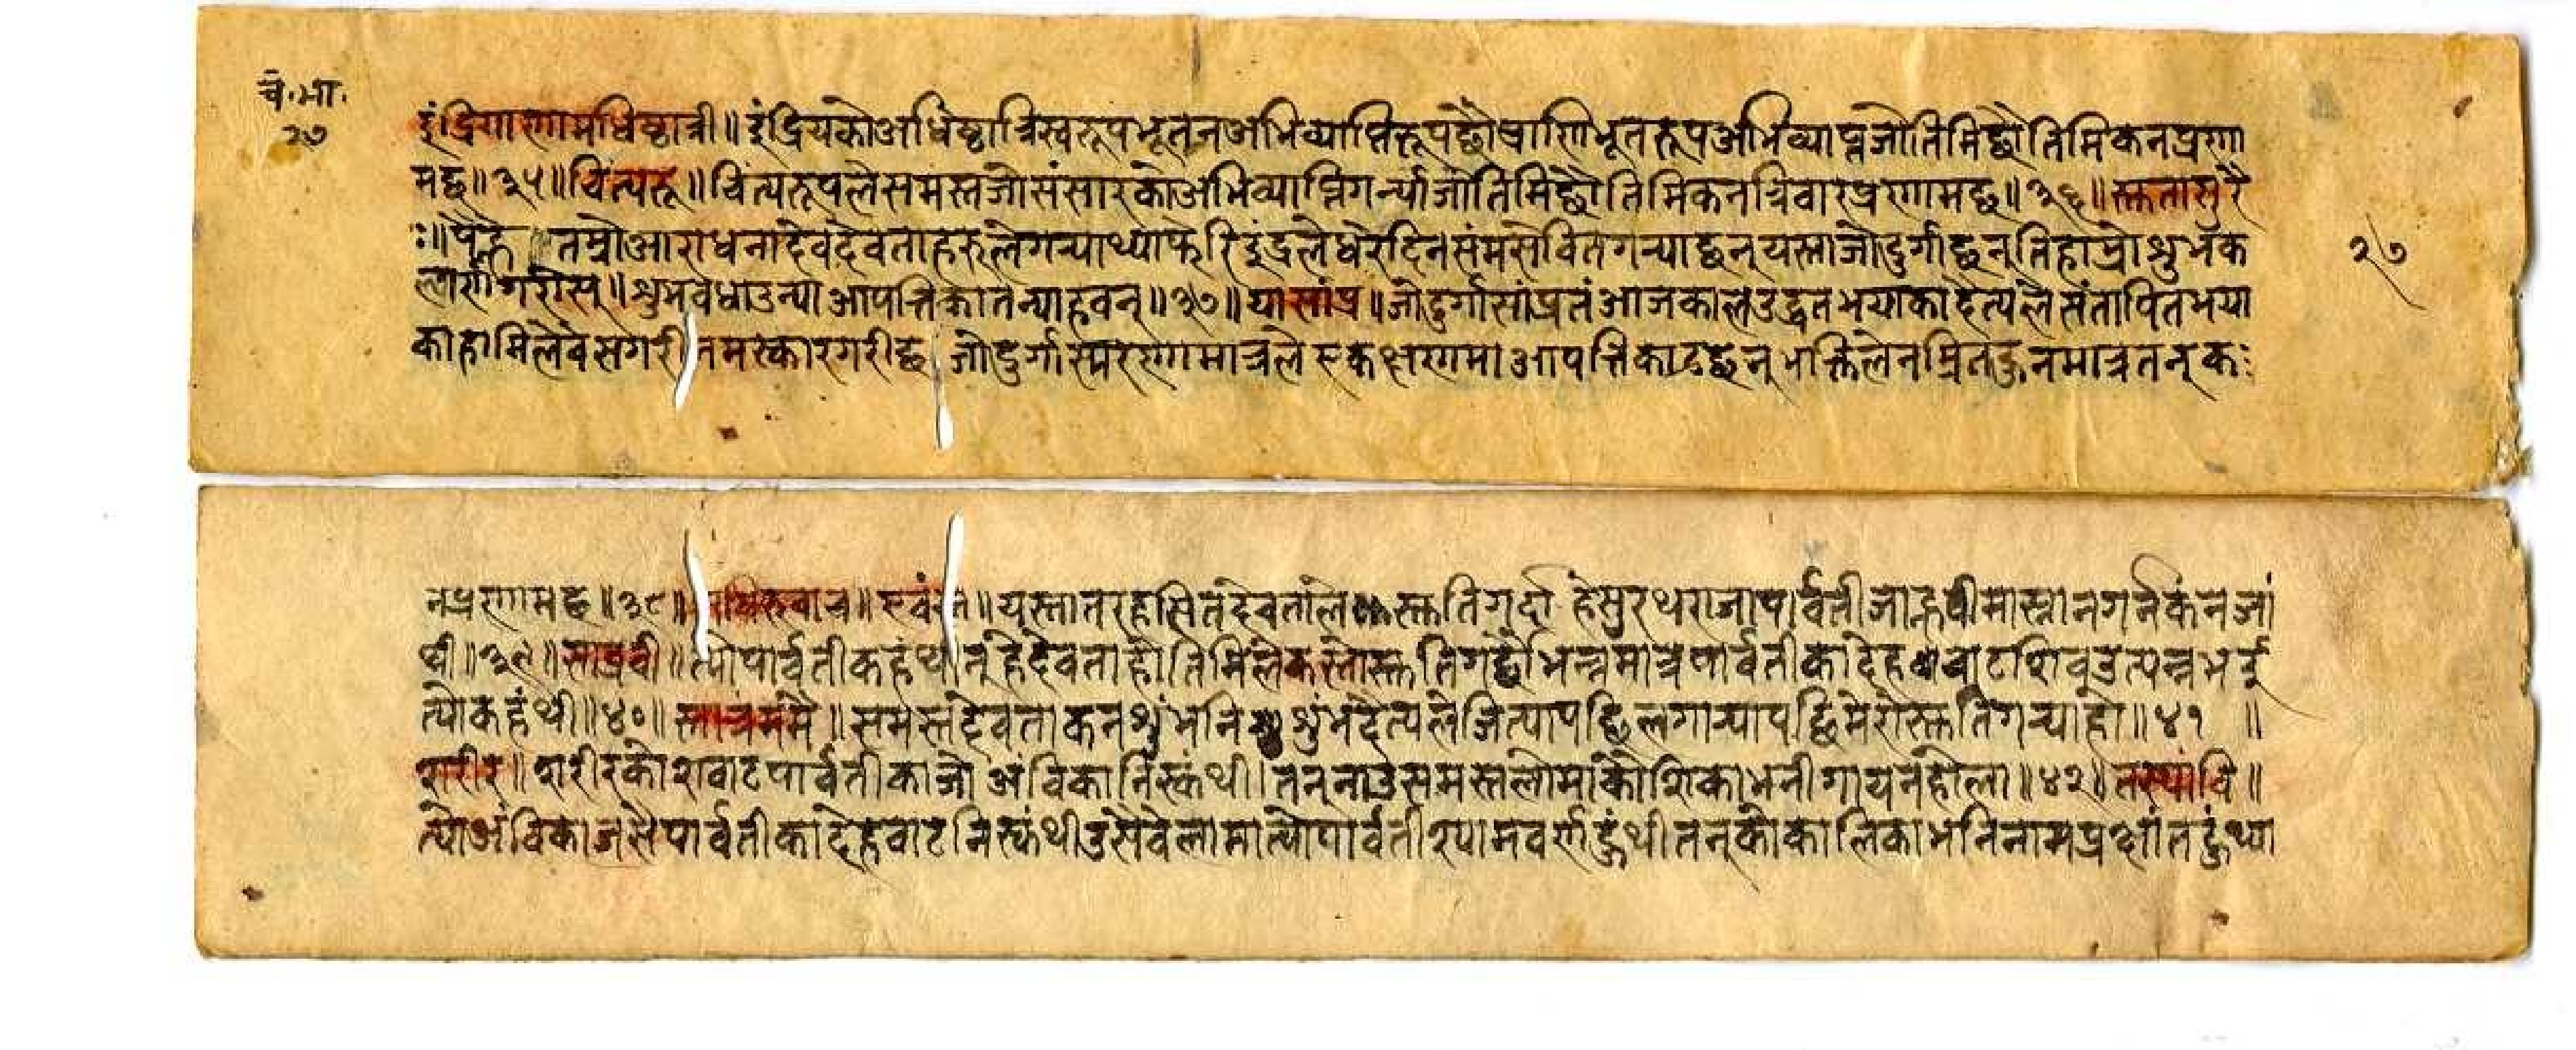 चं.भा.
२७
इंद्रियाणामधिष्ठात्री॥इंद्रियकोअधिष्ठात्रिस्वरूपभूतनअभिव्याप्तिरूपछौप्राणिभूतरूपअभिव्याप्तजोतिमिछौतिमिकनप्रणा
मछ॥३५॥चिंत्यरू॥चित्यरूपलेसमस्तजोसंसारकोअभिव्याप्तिगर्न्याजोतिमिछौतिमिकनत्रिवारप्रणामछ॥३६॥स्तुतासुरै
ः॥पैह्ले तम्रोआराधनादेवदेवताहरुलेगर्‍याथ्याफेरिइंद्रलेधेरैदिनसंमसेवितगर्‍याछन्यस्ताजोदुर्गाछन्तिहाम्रोशुभक
ल्याणगरीस्॥शुभवधाउन्याआपत्तिकातन्याहवन्॥३७॥यासांप्र॥जोदुर्गासांप्रतंआजकालउद्धतभयाकादैत्यलेसंतापितभया
काहामिलेवसगरी नमस्कारगरीछ जोदुर्गास्मरणमात्रलेएकक्षणमाआपत्तिकाटछन्भक्तिलेनम्रितहुनमात्रतन्क
२७
नप्रणामछ॥३८॥ऋषिरुवाच॥एवंस्त॥यस्तातरहसितदेवतालेस्तुतिगर्दा हेसुरथराजापार्वतीजाह्नवीमास्नानगर्नकनजां
थी॥३९॥साब्रवी॥त्योपार्वतीकहंथिन्हेदेवताहोतिमिलेकस्तोस्तुतिगर्छौभिन्नमात्रैपार्वतीकोदेहबाटशिवउत्पन्नभई
त्योकहंथी॥४०॥स्तोत्रंममै॥समस्तदेवताकनशुंभनिशुंभदैत्यलेजित्यापछिलगार्‍यापछिमेरोस्तुतिगर्‍याहो॥४१॥
शरीरे॥शरीरकोशबाटपार्वतीकाजो अंविकानिस्कंथी।तन्नाउसमस्तलोमाकौशिकाभनीगायनहोला॥४२॥तस्यांवि॥
त्योअंविकाजसैपार्वतीकादेहबाटनिस्कंथीउसैवेलामात्योपार्वतीश्यामवर्णहुंथीतन्कोकालिकाभनिनामप्रक्षांतहुंथ्या